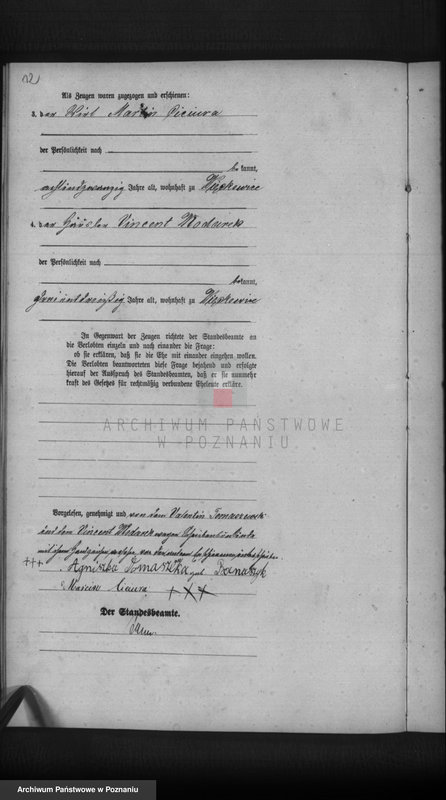 Als Zeugen waren zugezogen und erschienen:
3. der Wirt Martin Ciciura
der Persönlichkeit nach
be kannt,
achtundzwanzig Jahre alt, wohnhaft zu Więckowice
4. der Häusler Vincent Wodarek
der Persönlichkeit nach
be kannt,
zweiunddreißig Jahre alt, wohnhaft zu
In Gegenwart der Zeugen richtete der Standesbeamte an
die Verlobten einzeln und nach einander die Frage:
ob sie erklären, daß sie die Ehe mit einander eingehen wollen.
Die Verlobten beantworteten diese Frage bejahend und erfolgte
hierauf der Ausspruch des Standesbeamten, daß er sie nunmehr
kraft des Gesetzes für rechtmäßig verbundene Eheleute erkläre.
ARCHIWUM PAŃSTWOWE
W POZNANIU
Vorgelesen, genehmigt und von dem Valentin Tomaszewski
und dem Vincent Wodarek wegen
mit ihren Handzeichen
+++
Agniszka
Marcin Ciciura +++
Der Standesbeamte.
Archiwum Państwowe w Poznaniu